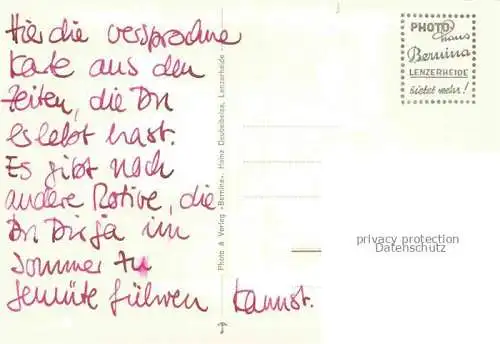 Hier die versprochne
Karte aus den
Zeiten, die Du
erlebt hast.
Es gibt noch
andere Motive, die
Du Dir ja im
Sommer zu
Gemüte führen kannst.
Photo & Verlag «Bernina», Heinz Deubelbeiss, Lenzerheide
PHOTO
haus
Bernina
LENZERHEIDE
bietet mehr!
privacy protection
Datenschutz